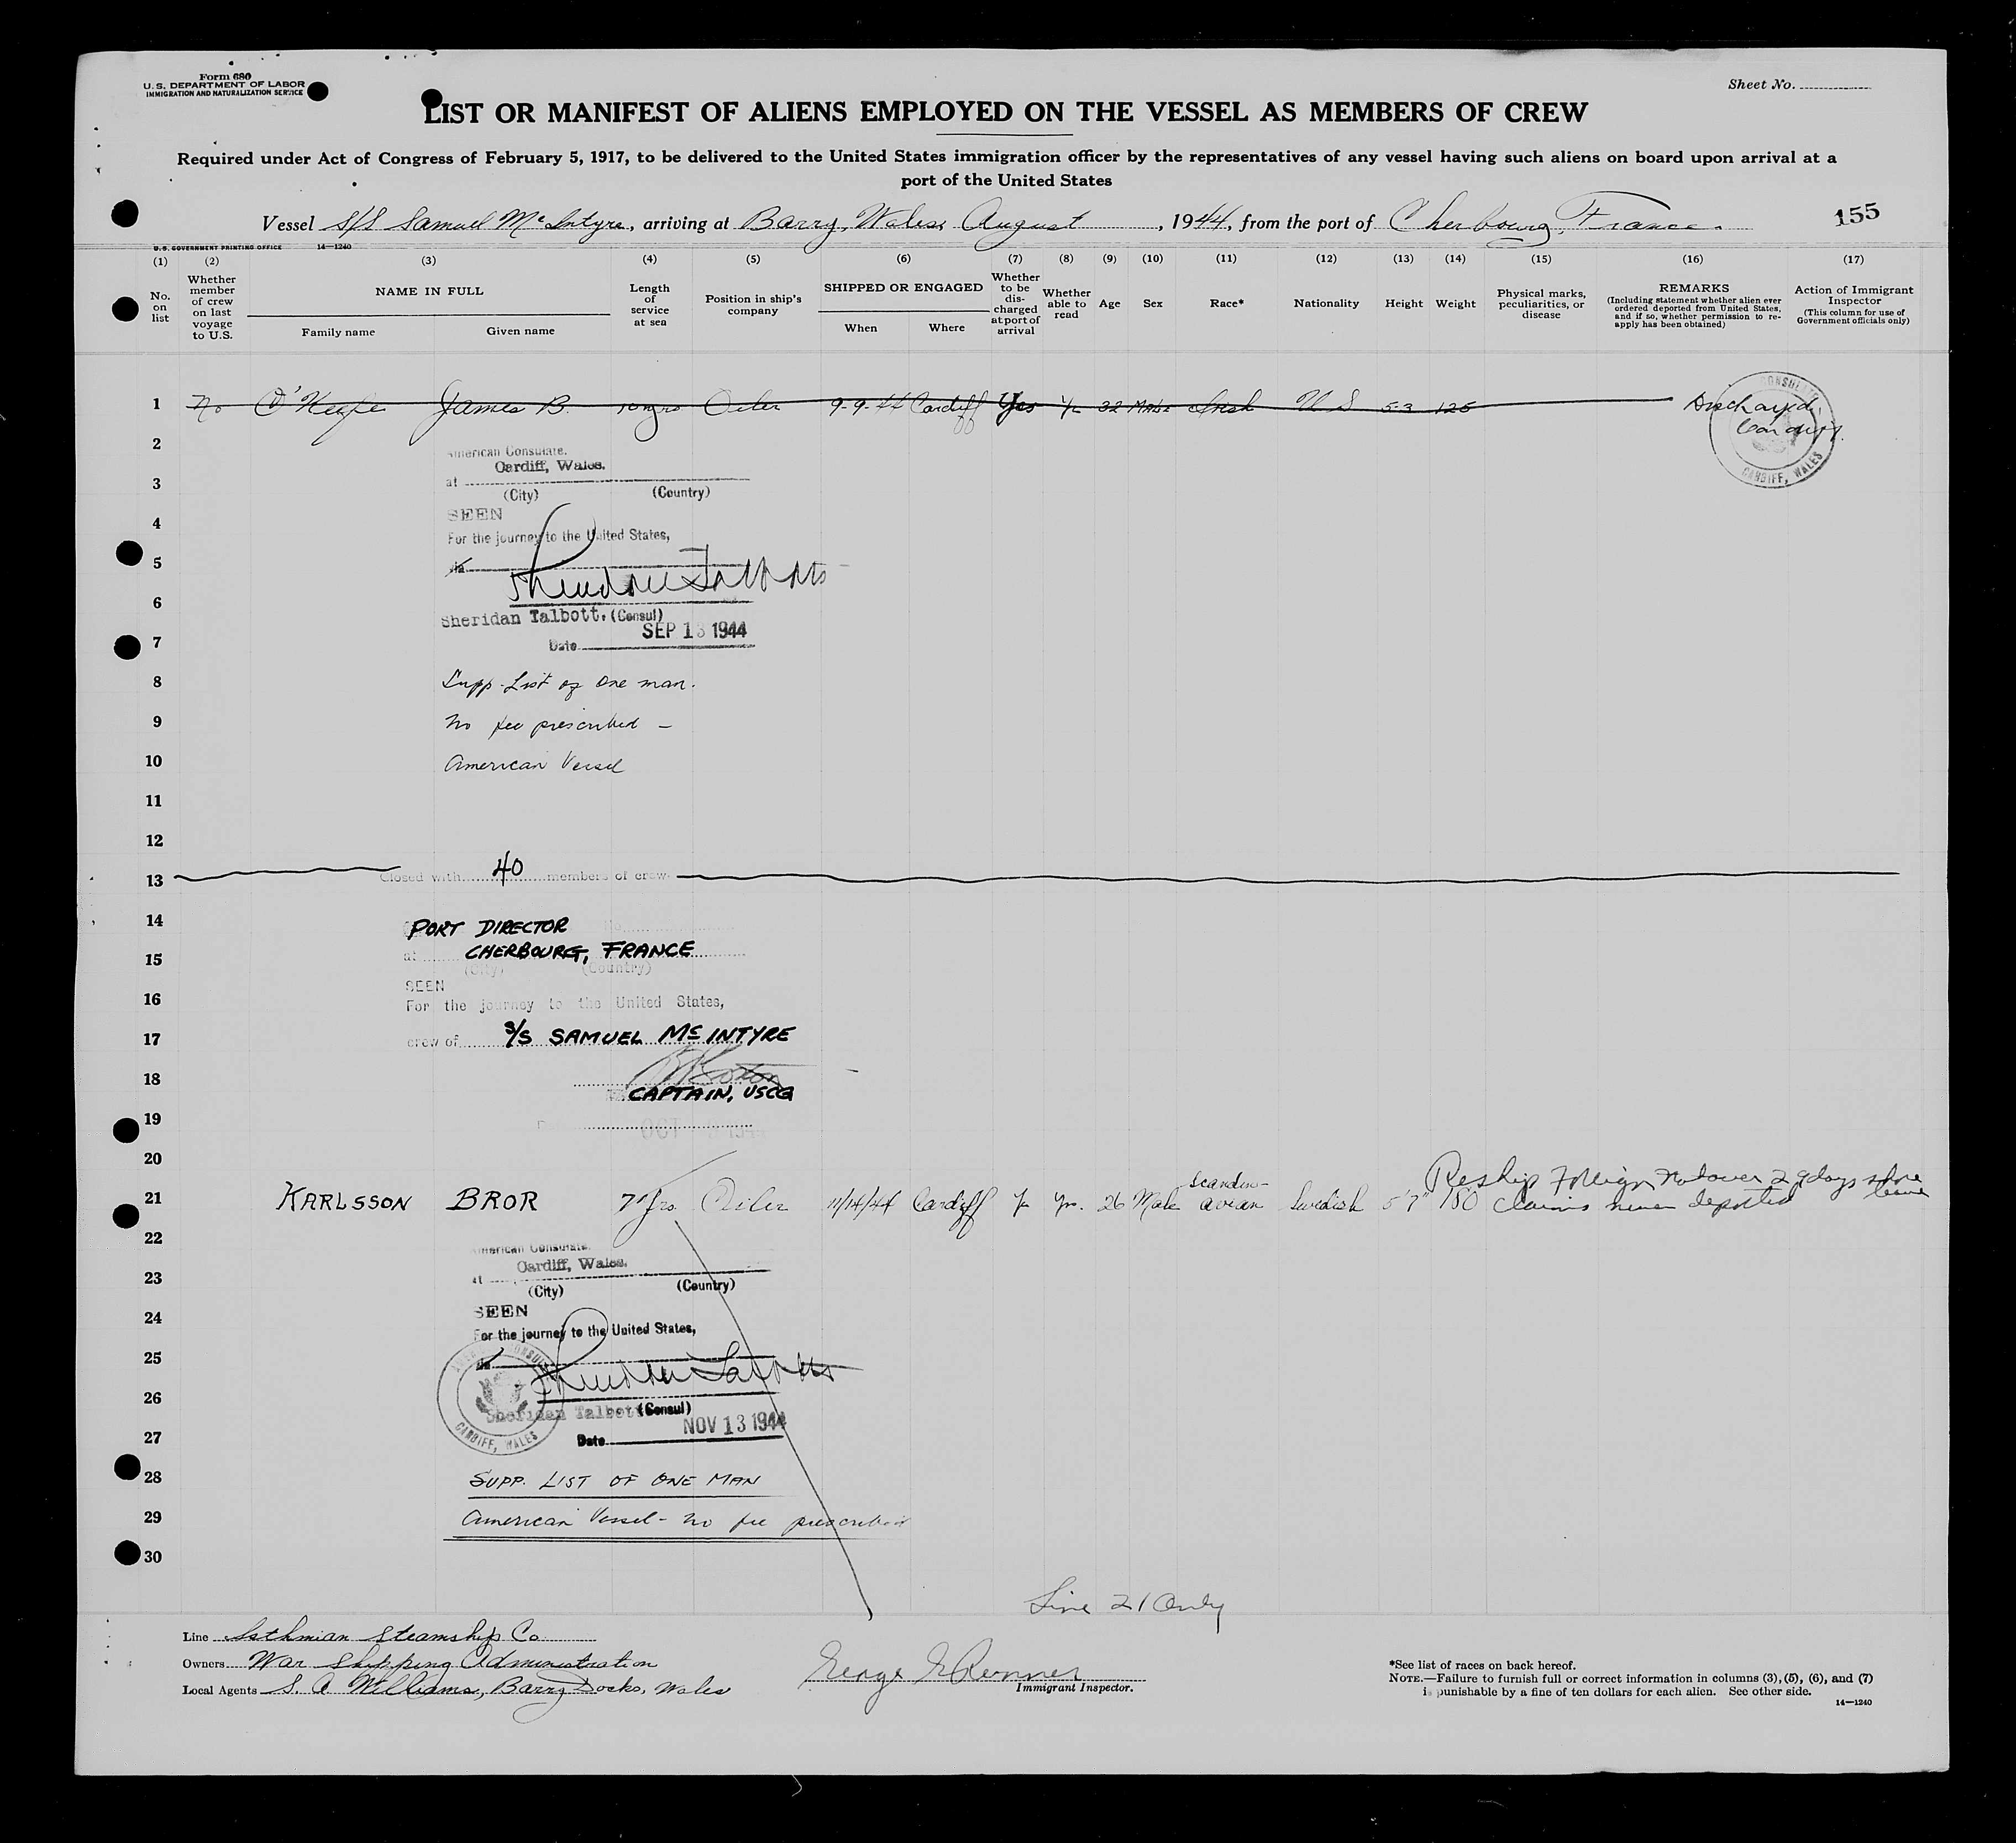 Form 680
U. S. DEPARTMENT OF LABOR
IMMIGRATION AND NATURALIZATION SERVICE
Sheet No.
LIST OR MANIFEST OF ALIENS EMPLOYED ON THE VESSEL AS MEMBERS OF CREW
Required under Act of Congress of February 5, 1917, to be delivered to the United States immigration officer by the representatives of any vessel having such aliens on board upon arrival at a
port of the United States
Vessel S/S Samuel McIntyre, arriving at Barry, Wales, August, 1944, from the port of Cherbourg, France.
155
U. S. GOVERNMENT PRINTING OFFICE 14—1240
(1) (2) (3) (4) (5) (6) (7) (8) (9) (10) (11) (12) (13) (14) (15) (16) (17)
No. on list
Whether member of crew on last voyage to U.S.
NAME IN FULL
Family name Given name
Length of service at sea
Position in ship's company
SHIPPED OR ENGAGED
When Where
Whether to be discharged at port of arrival
Whether able to read
Age
Sex
Race*
Nationality
Height
Weight
Physical marks, peculiarities, or disease
REMARKS
(Including statement whether alien ever ordered deported from United States, and if so, whether permission to re-apply has been obtained)
Action of Immigrant Inspector
(This column for use of Government officials only)
1 No O'Keefe James B. 10 yrs Oiler 9-9-44 Cardiff Yes Yes 32 Male Irish U S 5-3 125 Discharged Cardiff.
CARDIFF, WALES
2
American Consulate.
Cardiff, Wales.
3 at
(City) (Country)
4 SEEN
For the journey to the United States,
5 via
6
Sheridan Talbott. (Consul)
7 Date SEP 13 1944
8 Supp. List of One man.
9 No fee prescribed —
10 American Vessel
11
12
13 Closed with 40 members of crew.
14 PORT DIRECTOR
15 at CHERBOURG, FRANCE
(City) (Country)
SEEN
16 For the journey to the United States,
17 crew of S/S SAMUEL McINTYRE
18
CAPTAIN, USCG
19
OCT
20
21 KARLSSON BROR 7 yrs. Oiler 11/14/44 Cardiff Yes. 26 Male Scandinavian Swedish 5'7" 180 Reship Foreign not over 29 days shore leave claims never deported
22
American Consulate.
Cardiff, Wales.
23 at
(City) (Country)
24 SEEN
For the journey to the United States,
25 via
26
Sheridan Talbott (Consul)
CARDIFF, WALES
27 Date NOV 13 1944
28 SUPP. LIST OF ONE MAN
29 American Vessel - no fee prescribed
30
Line 21 Only
Line Isthmian Steamship Co.
Owners War Shipping Administration
Local Agents S. A. Williams, Barry Docks, Wales
Immigrant Inspector.
*See list of races on back hereof.
NOTE.—Failure to furnish full or correct information in columns (3), (5), (6), and (7)
is punishable by a fine of ten dollars for each alien. See other side.
14—1240